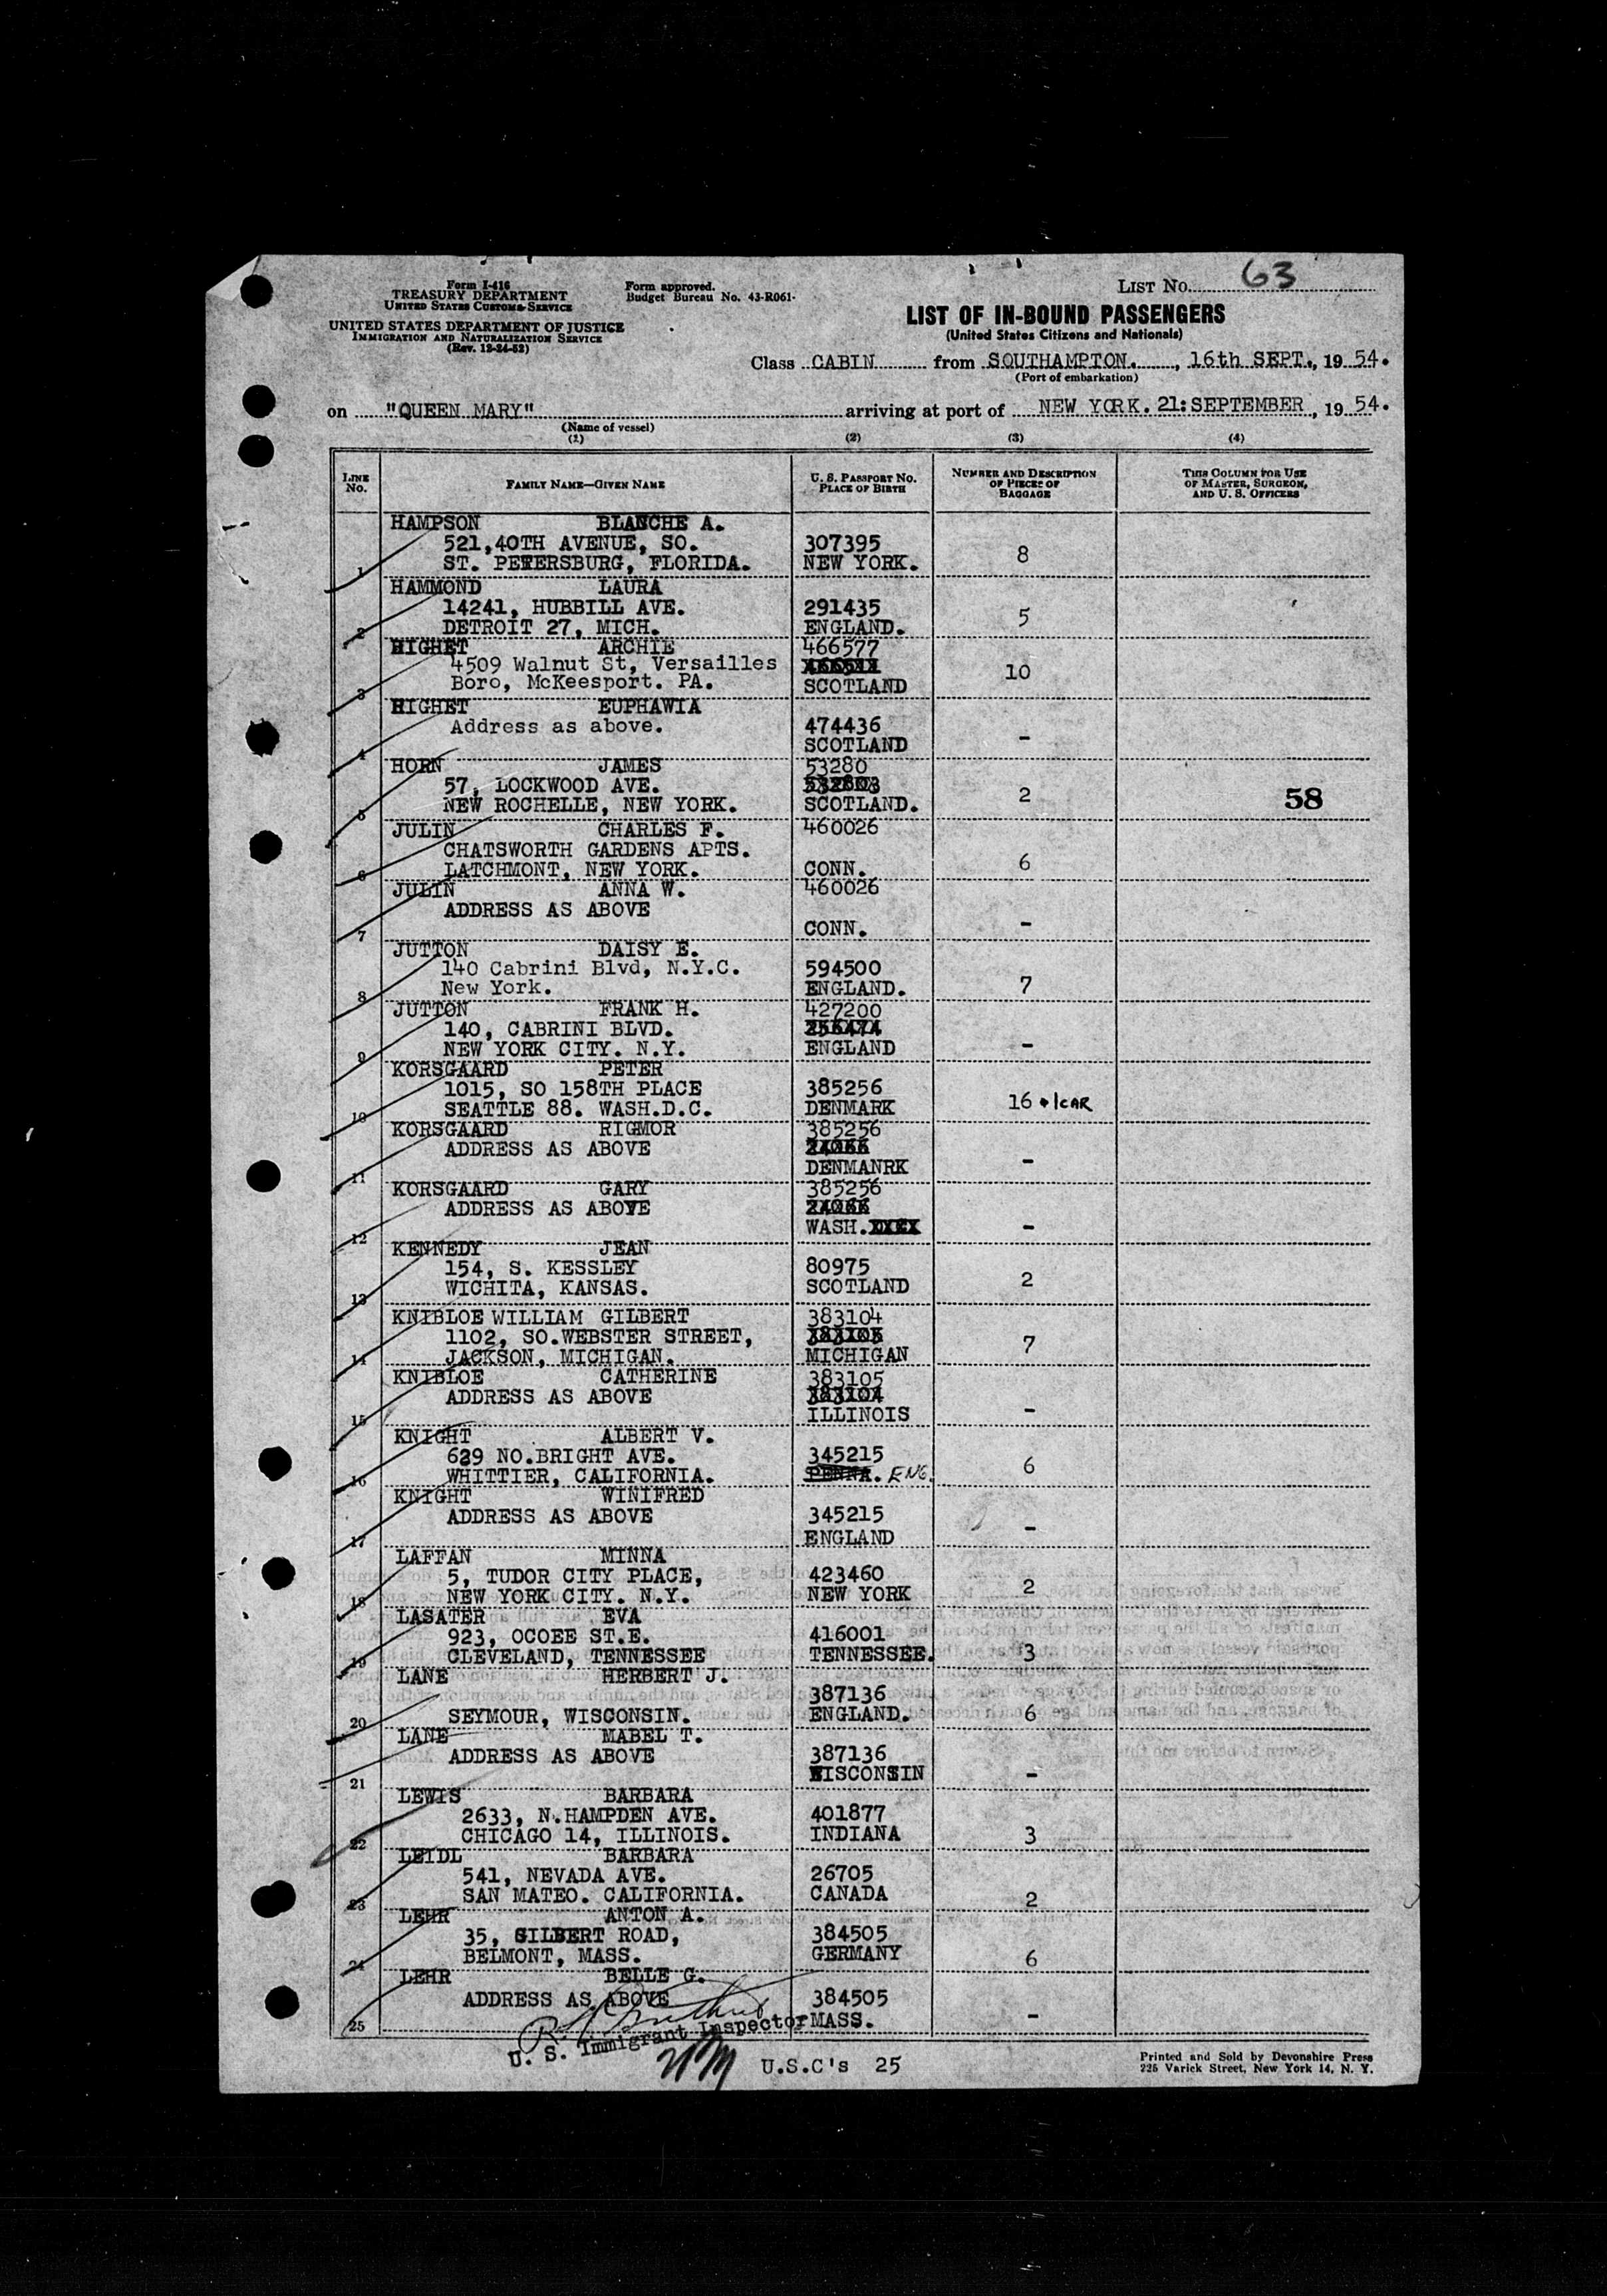 Form I-416
TREASURY DEPARTMENT
UNITED STATES CUSTOMS SERVICE
UNITED STATES DEPARTMENT OF JUSTICE
IMMIGRATION AND NATURALIZATION SERVICE
(Rev. 12-24-52)
Form approved.
Budget Bureau No. 43-R061.
LIST No. 63
LIST OF IN-BOUND PASSENGERS
(United States Citizens and Nationals)
Class CABIN from SOUTHAMPTON., 16th SEPT., 1954.
(Port of embarkation)
on "QUEEN MARY" arriving at port of NEW YORK. 21:SEPTEMBER, 1954.
(Name of vessel)
(1) (2) (3) (4)
LINE No. FAMILY NAME—GIVEN NAME U. S. PASSPORT No. PLACE OF BIRTH NUMBER AND DESCRIPTION OF PIECES OF BAGGAGE THIS COLUMN FOR USE OF MASTER, SURGEON, AND U. S. OFFICERS
HAMPSON BLANCHE A.
521,40TH AVENUE, SO. 307395 8
1 ST. PETERSBURG, FLORIDA. NEW YORK.
HAMMOND LAURA
14241, HUBBILL AVE. 291435 5
2 DETROIT 27, MICH. ENGLAND.
HIGHET ARCHIE 466577
4509 Walnut St, Versailles
3 Boro, McKeesport. PA. SCOTLAND 10
HIGHET EUPHAWIA
Address as above. 474436
4 SCOTLAND -
HORN JAMES 53280
57, LOCKWOOD AVE. 532803
5 NEW ROCHELLE, NEW YORK. SCOTLAND. 2 58
JULIN CHARLES F. 460026
CHATSWORTH GARDENS APTS.
6 LATCHMONT, NEW YORK. CONN. 6
JULIN ANNA W. 460026
ADDRESS AS ABOVE
7 CONN. -
JUTTON DAISY E.
140 Cabrini Blvd, N.Y.C. 594500
8 New York. ENGLAND. 7
JUTTON FRANK H. 427200
140, CABRINI BLVD.
9 NEW YORK CITY. N.Y. ENGLAND -
KORSGAARD PETER
1015, SO 158TH PLACE 385256
10 SEATTLE 88. WASH.D.C. DENMARK 16 + 1 CAR
KORSGAARD RIGMOR 385256
ADDRESS AS ABOVE
11 DENMANRK -
KORSGAARD GARY 385256
ADDRESS AS ABOVE
12 WASH. -
KENNEDY JEAN
154, S. KESSLEY 80975
13 WICHITA, KANSAS. SCOTLAND 2
KNIBLOE WILLIAM GILBERT 383104
1102, SO.WEBSTER STREET, 383105
14 JACKSON, MICHIGAN. MICHIGAN 7
KNIBLOE CATHERINE 383105
ADDRESS AS ABOVE 383104
15 ILLINOIS -
KNIGHT ALBERT V.
629 NO.BRIGHT AVE. 345215
16 WHITTIER, CALIFORNIA. PENNA. ENG. 6
KNIGHT WINIFRED
ADDRESS AS ABOVE 345215
17 ENGLAND -
LAFFAN MINNA
5, TUDOR CITY PLACE, 423460
18 NEW YORK CITY. N.Y. NEW YORK 2
LASATER EVA
923, OCOEE ST.E. 416001
19 CLEVELAND, TENNESSEE TENNESSEE. 3
LANE HERBERT J.
387136
20 SEYMOUR, WISCONSIN. ENGLAND. 6
LANE MABEL T.
ADDRESS AS ABOVE 387136
21 WISCONSIN -
LEWIS BARBARA
2633, N.HAMPDEN AVE. 401877
22 CHICAGO 14, ILLINOIS. INDIANA 3
LEIDL BARBARA
541, NEVADA AVE. 26705
23 SAN MATEO. CALIFORNIA. CANADA 2
LEHR ANTON A.
35, GILBERT ROAD, 384505
24 BELMONT, MASS. GERMANY 6
LEHR BELLE G.
ADDRESS AS ABOVE 384505
25 MASS. -
U. S. Immigrant Inspector
U.S.C's 25
Printed and Sold by Devonshire Press
225 Varick Street, New York 14, N. Y.